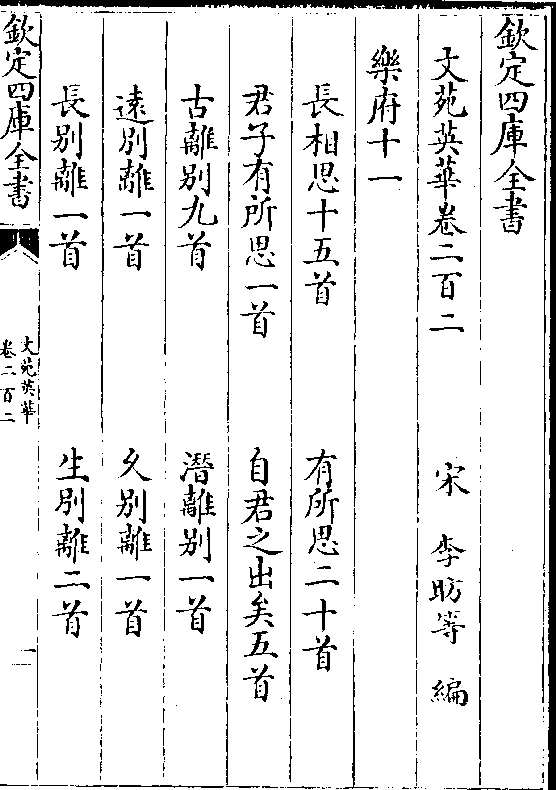 欽定四庫全書
文苑英華卷二百二
宋 李昉等 編
樂府十一
長相思十五首
有所思二十首
君子有所思一首
自君之出矣五首
古離別九首
潛離別一首
遠別離一首
久別離一首
長別離一首
生別離二首
欽定四庫全書
文苑英華
卷二百二
一